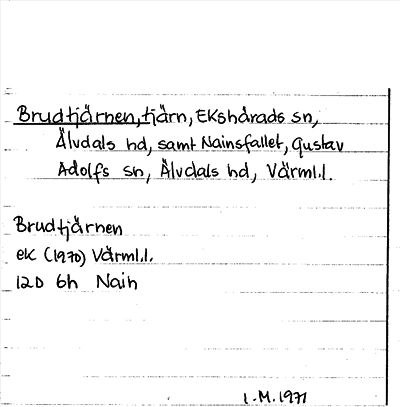 Brudtjärnen, tjärn, Ekshärads sn,
Älvdals hd, samt Nainsfallet, Gustav
Adolfs sn, Älvdals hd, Värml.l.
Brudtjärnen
ek (1970) Värml.l.
12D 6h Naih
I.M. 1971